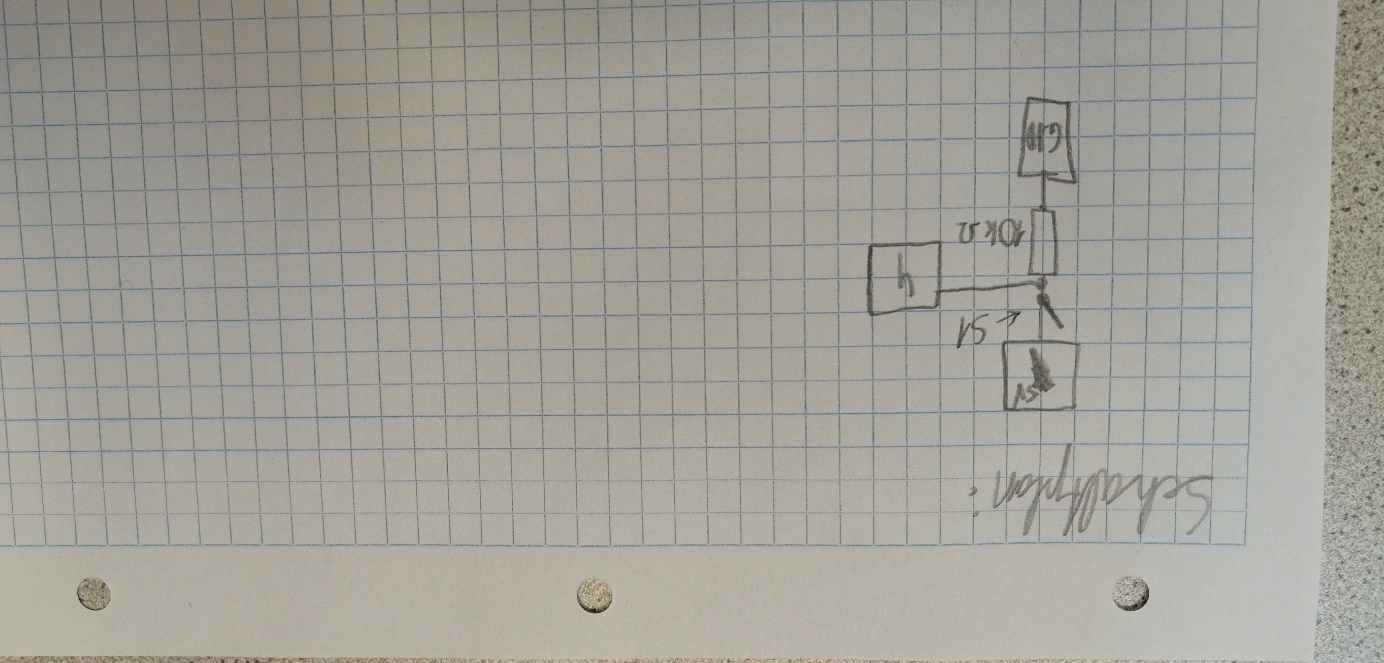 Schaltplan:
5V
S1
4
10kΩ
GND